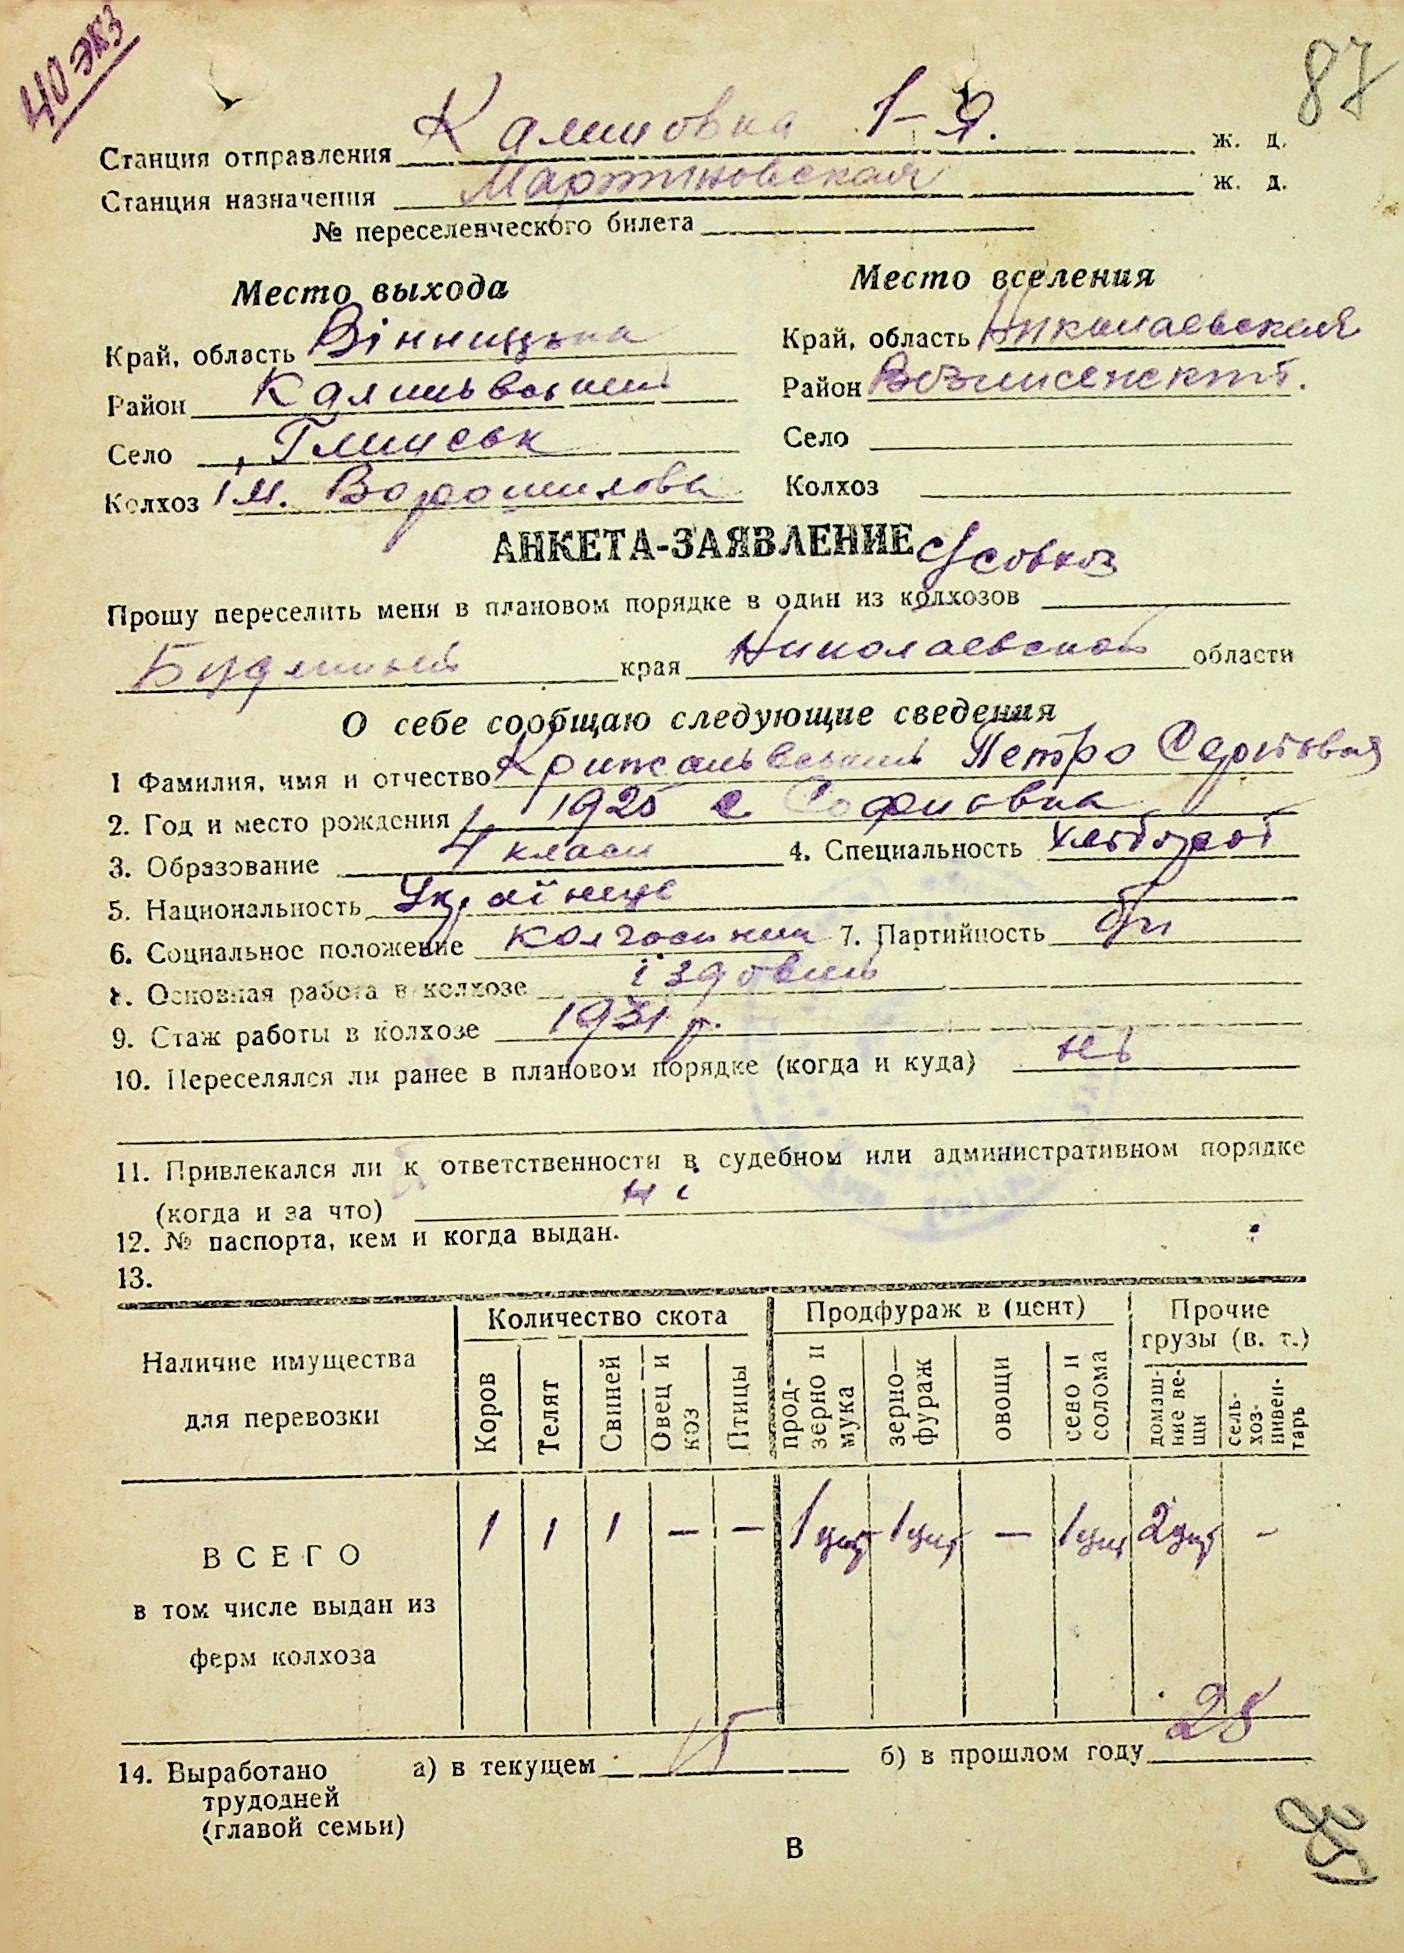 40 экз
87
Станция отправления Калиновка 1-я. ж. д.
Станция назначения Мартиновская ж. д.
№ переселенческого билета
Место выхода
Край, область Вінницька
Район Калинівський
Село Глинськ
Колхоз ім. Ворошилова
Место вселения
Край, область Николаевская
Район
Село
Колхоз
АНКЕТА-ЗАЯВЛЕНИЕ
Прошу переселить меня в плановом порядке в один из колхозов
края Николаевской области
О себе сообщаю следующие сведения
1 Фамилия, имя и отчество Петро
2. Год и место рождения 1925 с Софиовка
3. Образование 4 класи 4. Специальность хлібороб
5. Национальность Українець
6. Социальное положение колгоспник 7. Партийность б/п
8. Основная работа в колхозе їздовий
9. Стаж работы в колхозе 1931 р.
10. Переселялся ли ранее в плановом порядке (когда и куда) ні
11. Привлекался ли к ответственности в судебном или административном порядке
(когда и за что) ні
12. № паспорта, кем и когда выдан.
13.
Наличие имущества
для перевозки
Количество скота
Коров
Телят
Свиней
Овец и
коз
Птицы
Продфураж в (цент)
прод-
зерно и
мука
зерно—
фураж
овощи
сено и
солома
Прочие
грузы (в. т.)
домаш-
ние ве-
щи
сель-
хоз-
инвен-
тарь
ВСЕГО 1 1 1 — — 1 цнт 1 цнт — 1 цнт 2 цнт -
в том числе выдан из
ферм колхоза
14. Выработано а) в текущем 15 б) в прошлом году 28
трудодней
(главой семьи)
В